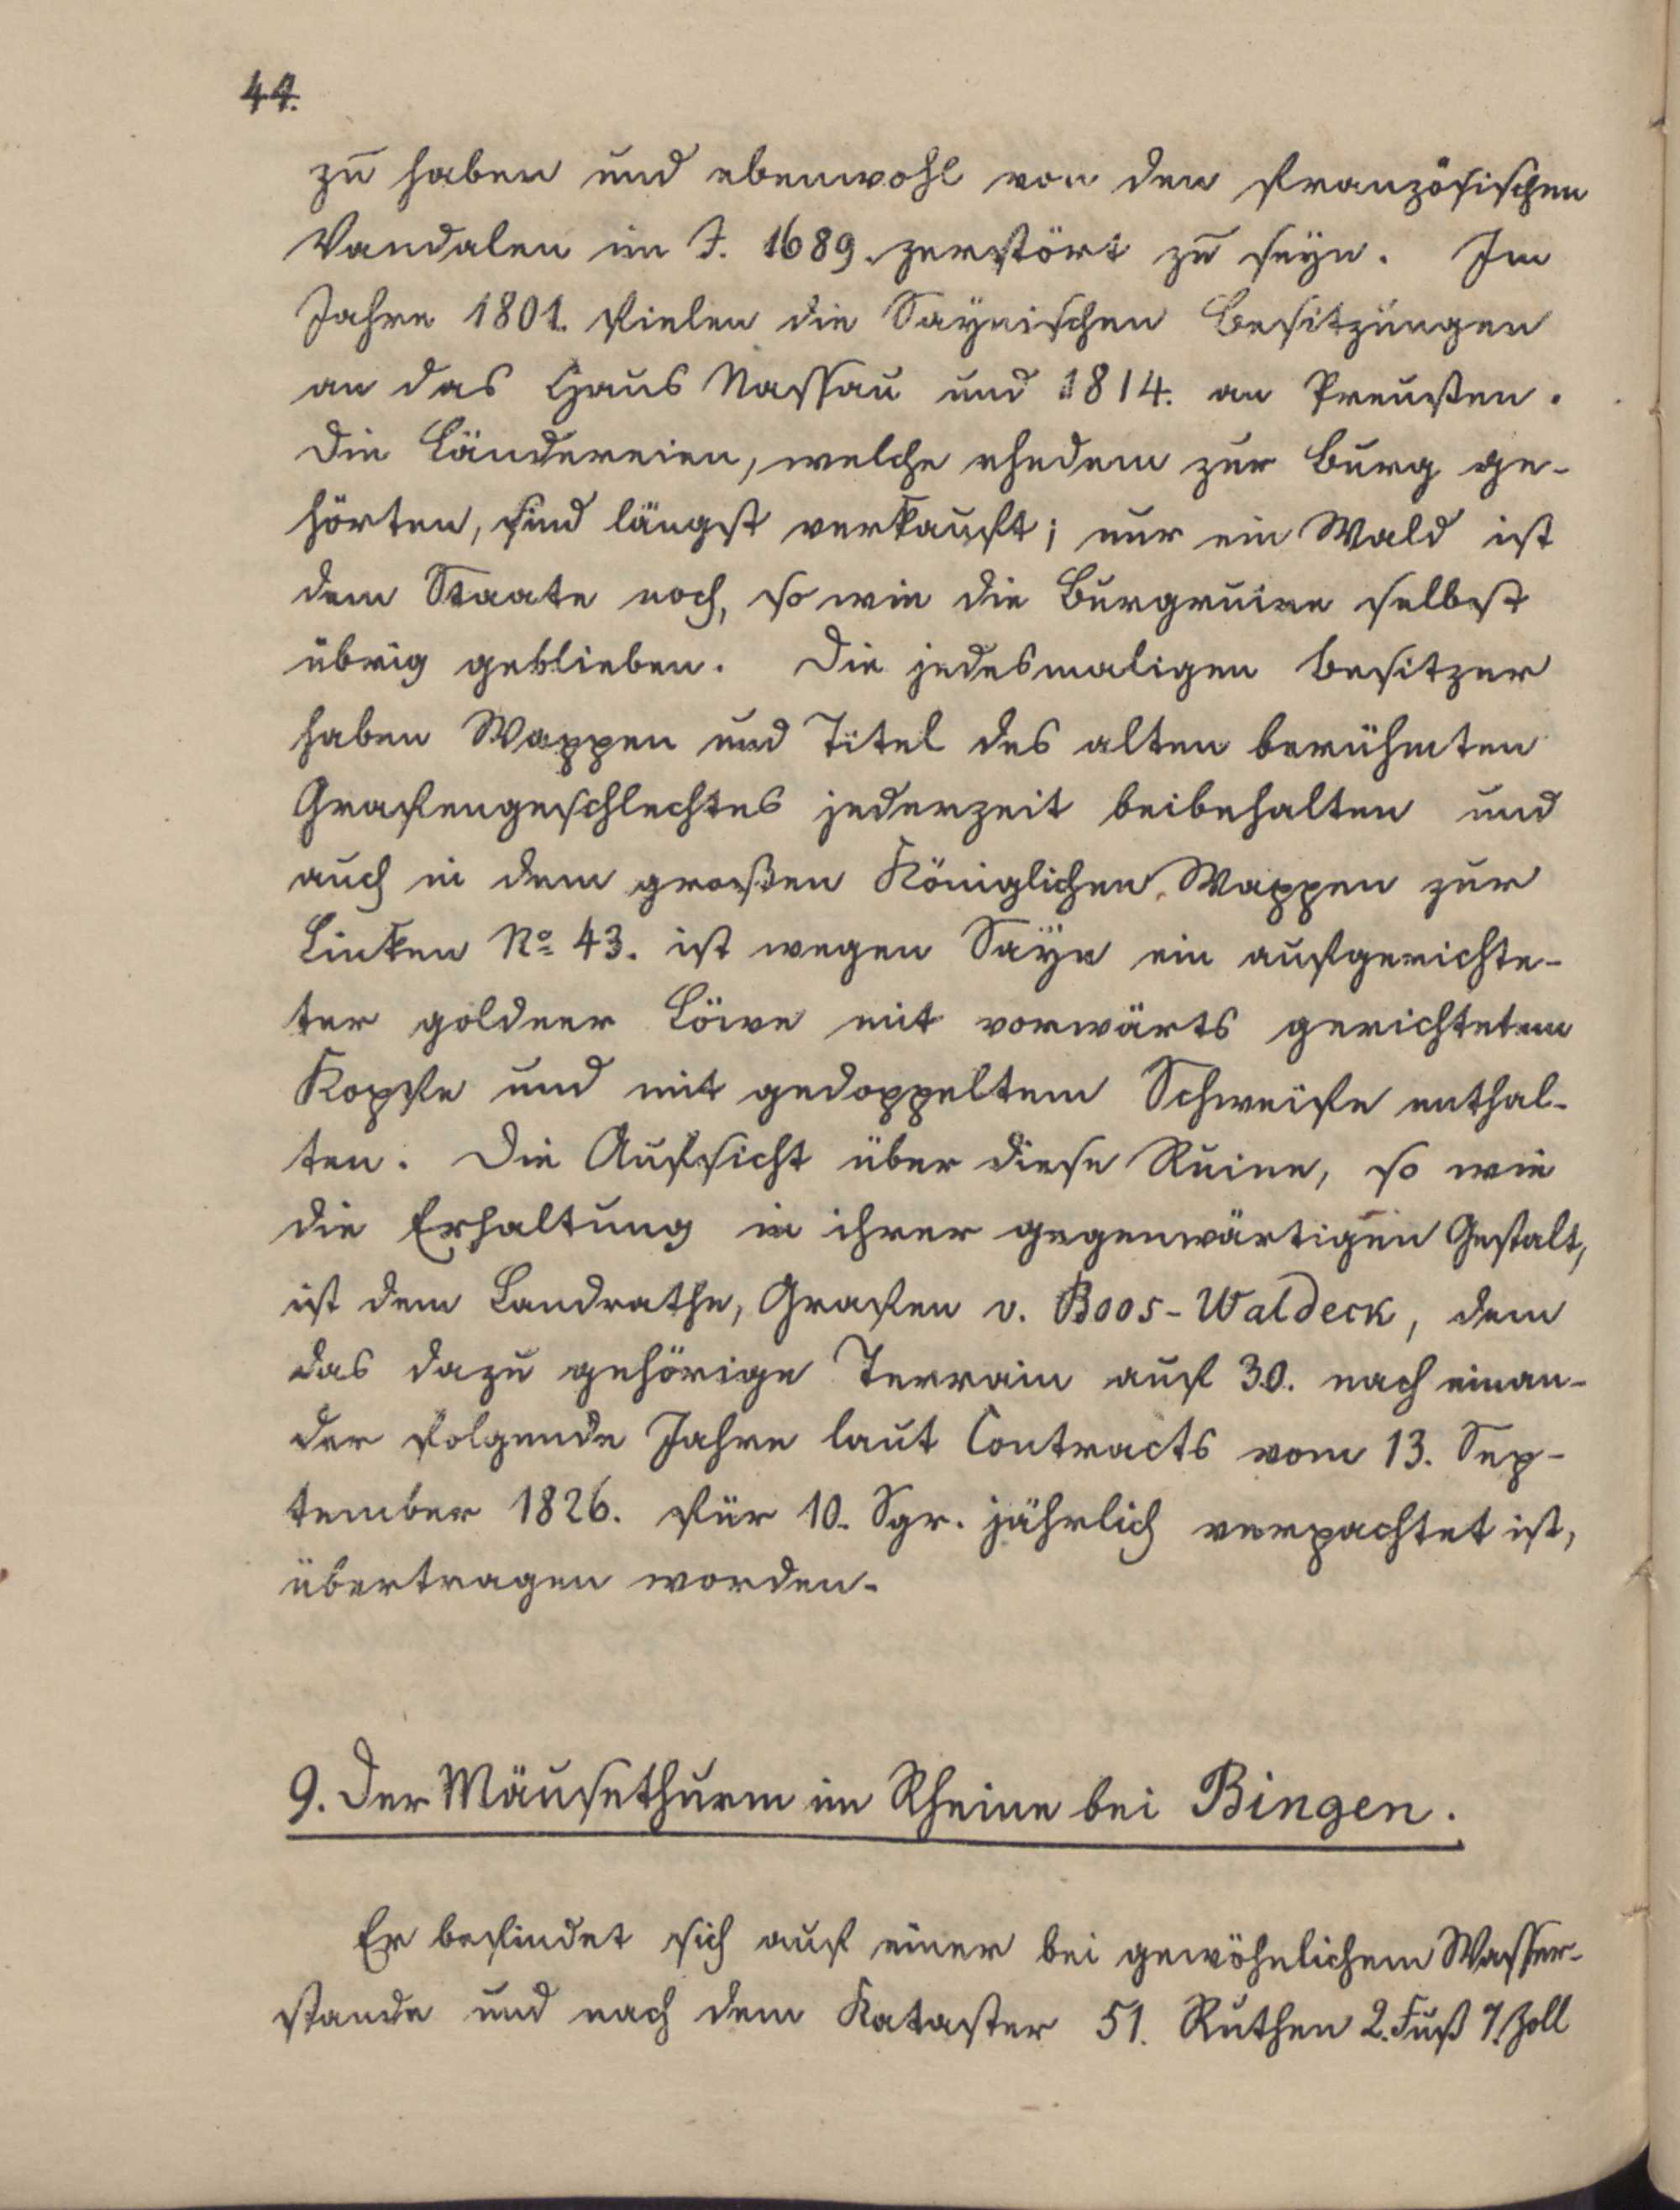 44.
zu haben und ebenwohl von den französischen
Vandalen im J. 1689. zerstört zu seyn. Im
Jahre 1801. fielen die Saÿnischen Besitzungen
an das Haus Nassau und 1814. an Preußen.
Die Ländereien, welche ehedem zur Burg ge-
hörten, sind längst verkauft; nur ein Wald ist
dem Staate noch, so wie die Burgruine selbst
übrig geblieben. Die jedesmaligen Besitzer
haben Wappen und Titel des alten berühmten
Grafengeschlechtes jederzeit beibehalten und
auch in dem großen Königlichen Wappen zur
Linken No 43. ist wegen Saÿn ein aufgerichte-
ter goldner Löwe mit vorwärts gerichtetem
Kopfe und mit gedoppeltem Schweife enthal-
ten. Die Aufsicht über diese Ruine, so wie
die Erhaltung in ihrer gegenwärtigen Gestalt,
ist dem Landrathe, Grafen v. Boos-Waldeck, dem
das dazu gehörige Terrain auf 30. nach einan-
der folgende Jahre laut Contracts vom 13. Sep-
tember 1826. für 10. Sgr. jährlich verpachtet ist,
übertragen worden.
9. Der Mäusethurm im Rheine bei Bingen.
Er befindet sich auf einer bei gewöhnlichem Wasser-
stande und nach dem Kataster 51. Ruthen 2. Fuß 7. Zoll